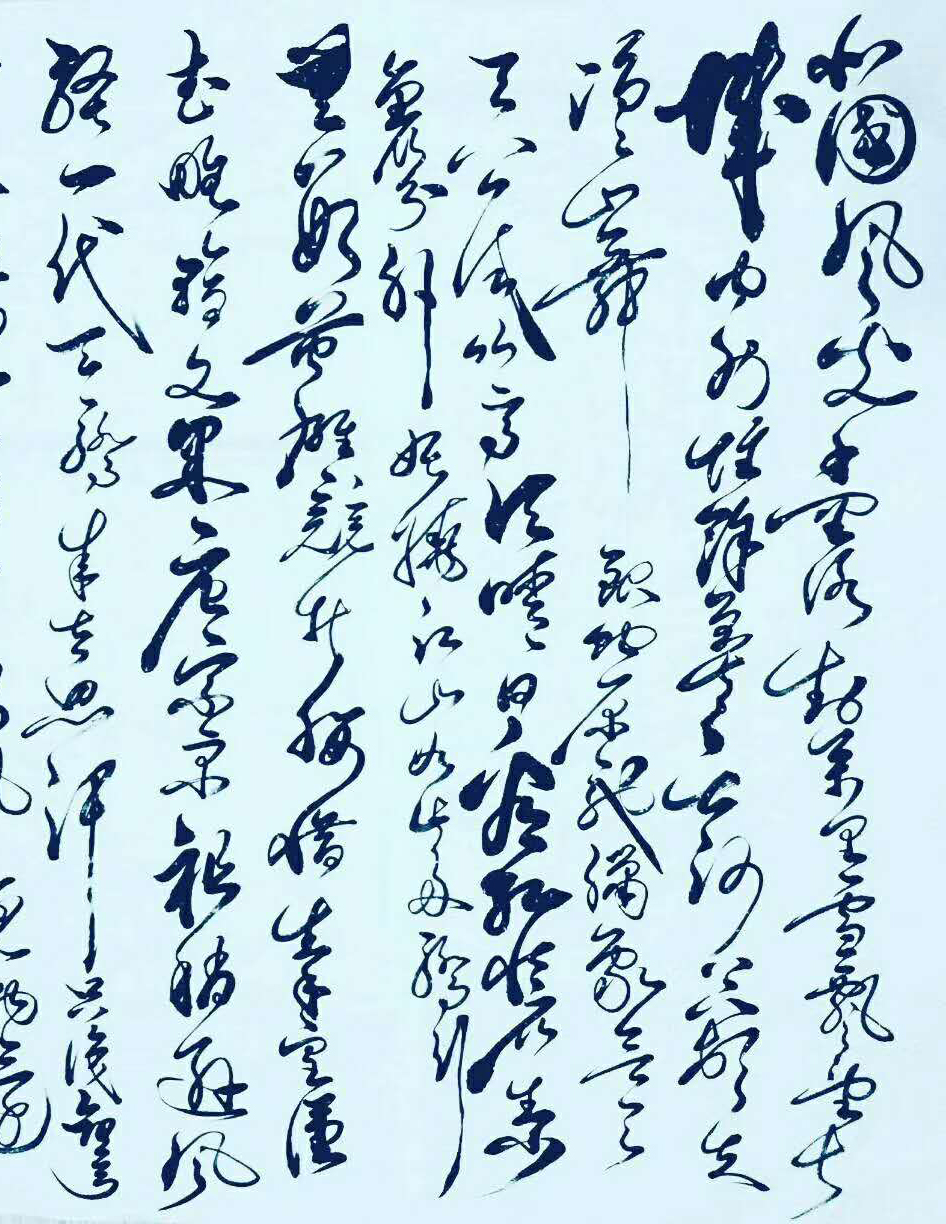 北國風光千里冰封萬里雪飄望長
城内外惟餘莽莽大河上下頓失
滔滔山舞銀蛇原馳蠟象欲与
天公試比高須晴日看紅裝素
裹分外妖嬈江山如此多嬌引
無數英雄競折腰惜秦皇漢
武略輸文采唐宗宋祖稍遜風
騷一代天驕成吉思汗只識彎